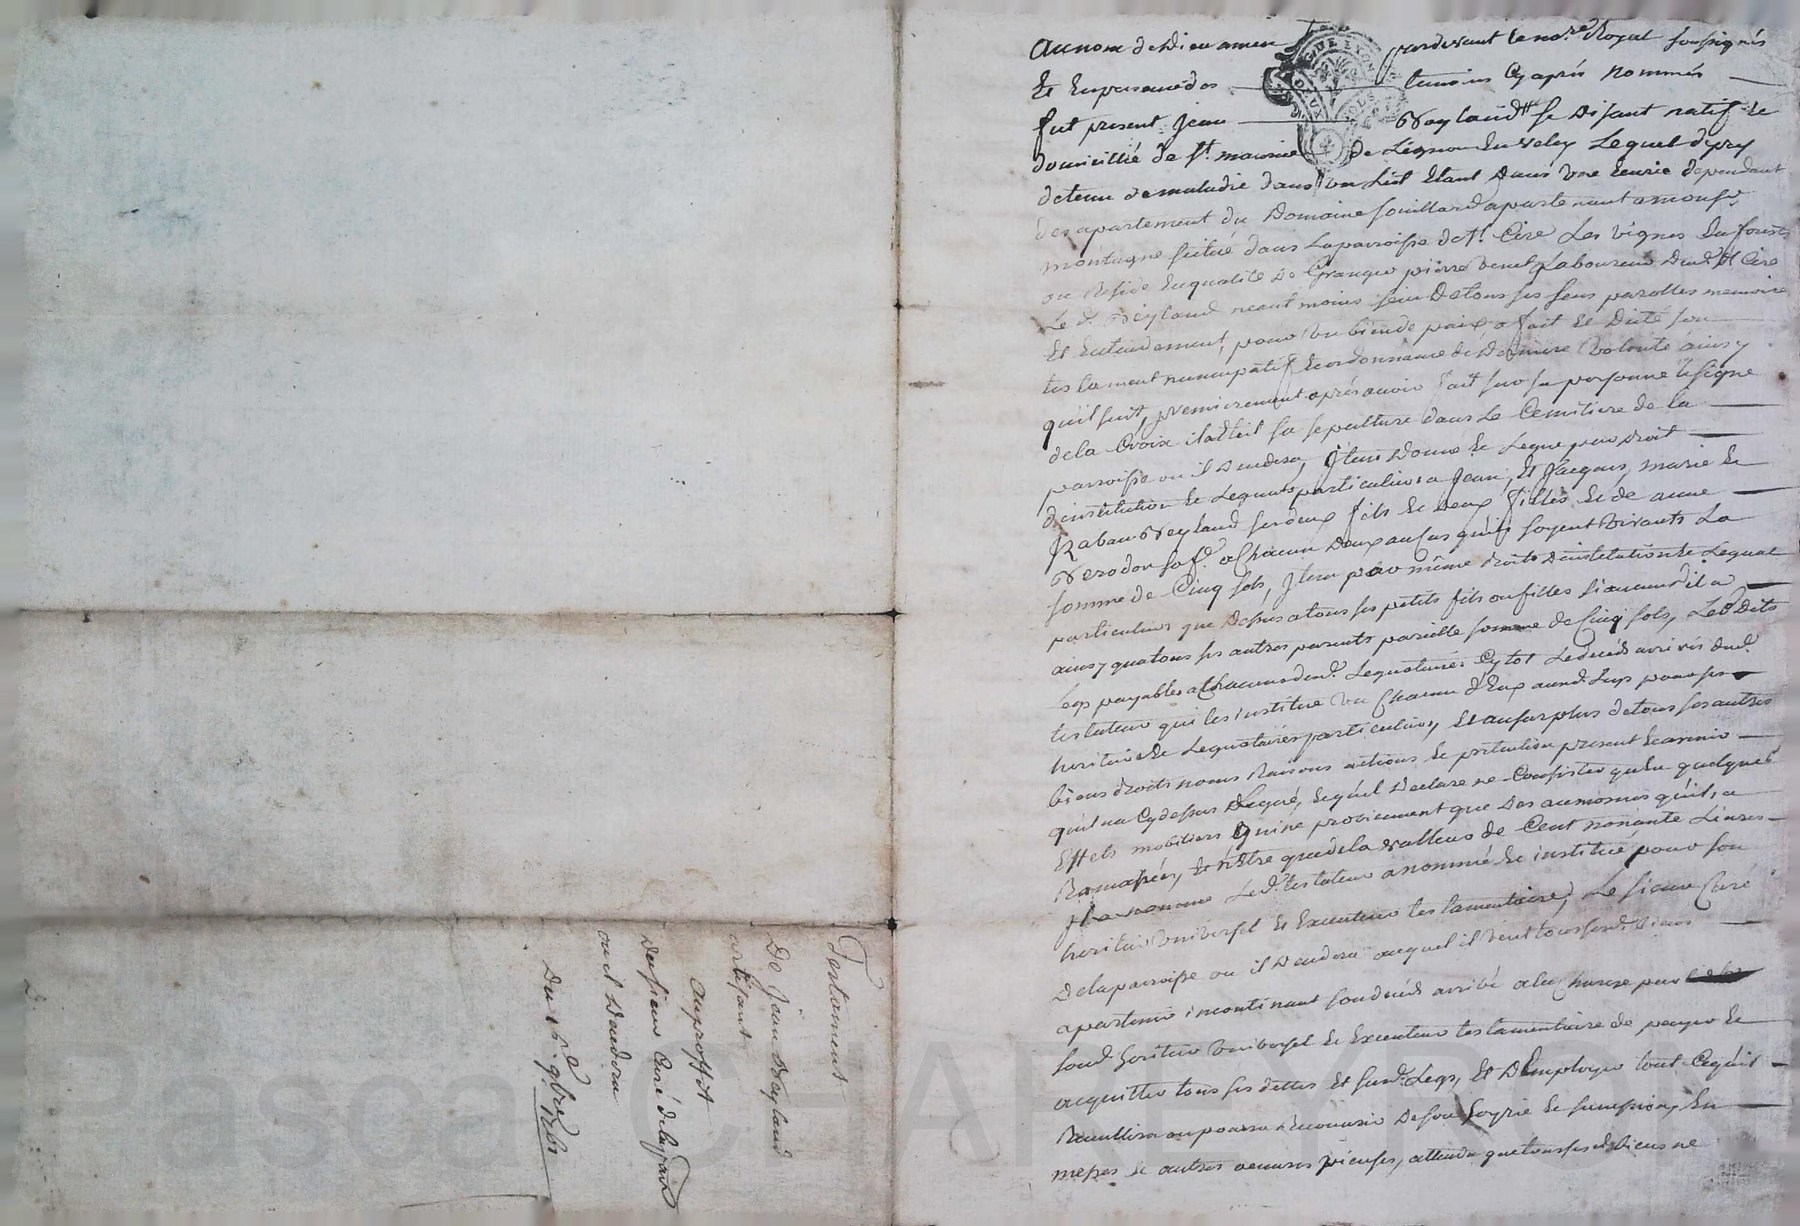 Au nom de Dieu amen pardevant le no.re Royal soussignés
Et En presence des temoins Cy aprés Nommés
fut present Jean Veyland se disant natif et
domicillié de S.t maurice de Lignon En velay Lequel Dy
detenu de maladie dans un Lict Etant dans une Ecurie dependant
des apartement du Domaine souillard apartenant a mons.r
montagne scitué dans La parroisse de S.t Cire Les vignes En forest
ou Reside En qualité De Granger pierre Laboureur Dud. S.t Cire
Le d. Veyland neant moins sein De tous ses sens parolles memoire
Et Entendement, pour un bien de paix a fait Et Dicté son
testament nuncupatif Et ordonnance de Derniere volonté ainsy
qu'il suit, premierement aprés avoir fait sur sa personne le signe
de la Croix il a Eleü sa sepulture dans Le Cemitiere de la
parroisse ou il Decedera, Item Donne Et Legue pour droit
d'institution Et Legats particuliers a Jean, Et Jacques, marie Et
Veyland ses deux fils Et Deux filles Et de anne
Verodon sa f.e a Chacun Deux au Cas qu'ils soyent vivants La
somme de Cinq sols, Item pour même droit D'institution Et Legat
particulier que Dessus a tous ses petits fils ou filles si aucuns il a
ainsy qu'a tous ses autres parents pareille somme de Cinq sols, Lesd. Dits
legs payables a Chacuns desd. Legataires Cytot Le deceds arrivé dud.
testateur qui les institue un Chacun d'Eux aud. Legs pour ses
heritiers Et Legataires particuliers, Et au surplus de tous ses autres
biens droits noms Raisons actions Et pretention present Et avenir
qu'il n'a Cy dessus Legué, Lequel Declare ne Consister qu'En quelques
Effets mobiliers Qui ne proviennent que Des aumosnes qu'il a
Ramassées, Et n'Etre que de la valleur de Cent nonante Livres
Led. testateur a nommé Et institué pour son
heritier Universel Et Executeur testamentaire, Le sieur Curé
De la parroisse ou il Decedera auquel il veut tous sesd. Biens
apartenir incontinant son deceds arrivé a la Charge par
sond. heritier Universel Et Executeur testamentaire de payer Et
acquitter tous ses dettes Et susd. Legs, Et D'Employer tout Ce qu'il
Recuillira ou pourra Recouvrir De son hoyrie Et succession, En
messes Et autres oeuvres pieuses, attendu que tous sesd. Biens ne
Testament
De Jean Veyland
artisant
au proffit
Du sieur Curé de la parr.
ou il Decedera
Du 9bre
Pascal CHAREYRON